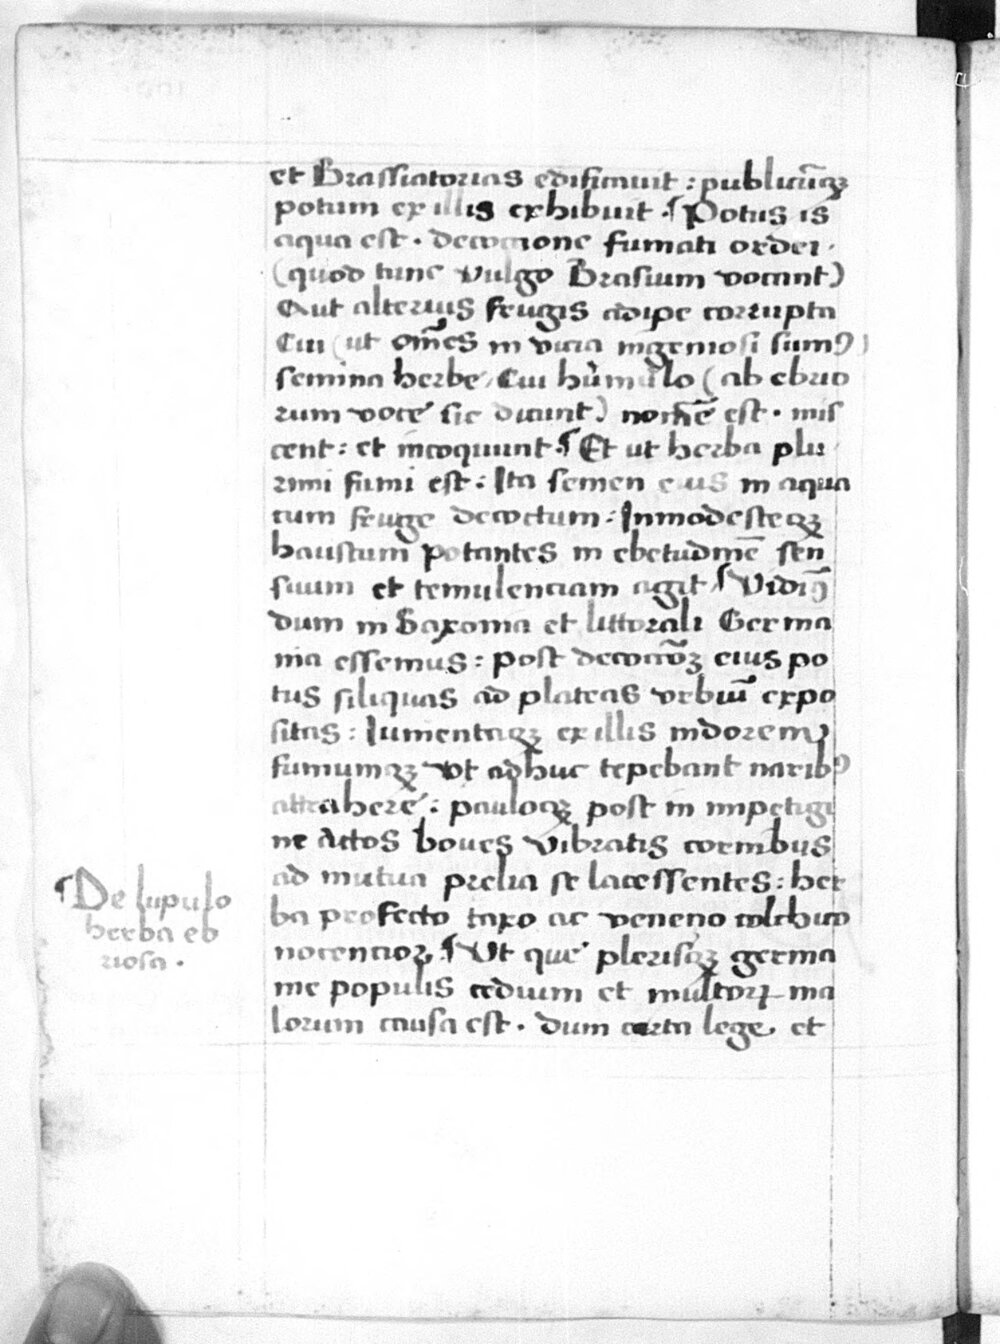 et Brassiatorias edificauit : publicūqꝫ
potum ex illis exhibuit · ¶ Potus is
aqua est · decoctione fumati ordei ·
(quod tunc vulgo Brasium vocant)
Aut alterius frugis adipe corrupta
Cui (ut om̄es in vicia ingeniosi sumꝰ)
semina herbe, Cui humulo (ab ebrio
rum voce sic dicunt) nomē est · mis
cent : et incoquunt · ¶ Et ut herba plu
rimi fumi est : Ita semen eius in aqua
cum fruge decoctum : Inmodesteqꝫ
haustum potantes in ebetudinē sen
suum et temulenciam agit ¶ Vidimꝰ
dum in Saxonia et littorali Germa
nia essemus : post decoctiōꝫ eius po
tus siliquas ad plateas vrbiū expo
sitas : Iumentaqꝫ ex illis indorem
fumumqꝫ vt adhuc tepebant naribꝰ
attrahere : pauloqꝫ post in impetigi
ne Actos boues vibratis cornibus
ad mutua prelia se lacessentes : her
ba profecto taxo ac veneno colchico
nocencior, ¶ Ut que plerisqꝫ germa
nie populis cedium et multoꝝ ma
lorum causa est · dum certa lege, et
¶ De lupulo
herba eb
riosa ·